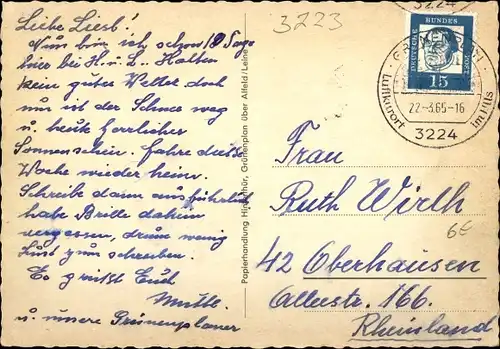 Liebe Liesl!
Nun bin ich schon 10 Tage
hier bei H. u. L. Hatten
kein gutes Wetter doch
nun ist der Schnee weg
u. heute herrlicher
Sonnenschein. Fahre diese
Woche wieder heim.
Schreibe dann ausführlich
habe Brille daheim
vergessen, drum wenig
Lust zum schreiben.
Es grüßt Euch
Mutti.
u. unsere Grünenplaner
Papierhandlung Grünenplan über Alfeld/Leine
3223
3224
DEUTSCHE BUNDESPOST
15
Luftkurort im Hils
22.-3.65-16
3224
Frau
Ruth Wirth
6€
42 Oberhausen
166.
Rheinland